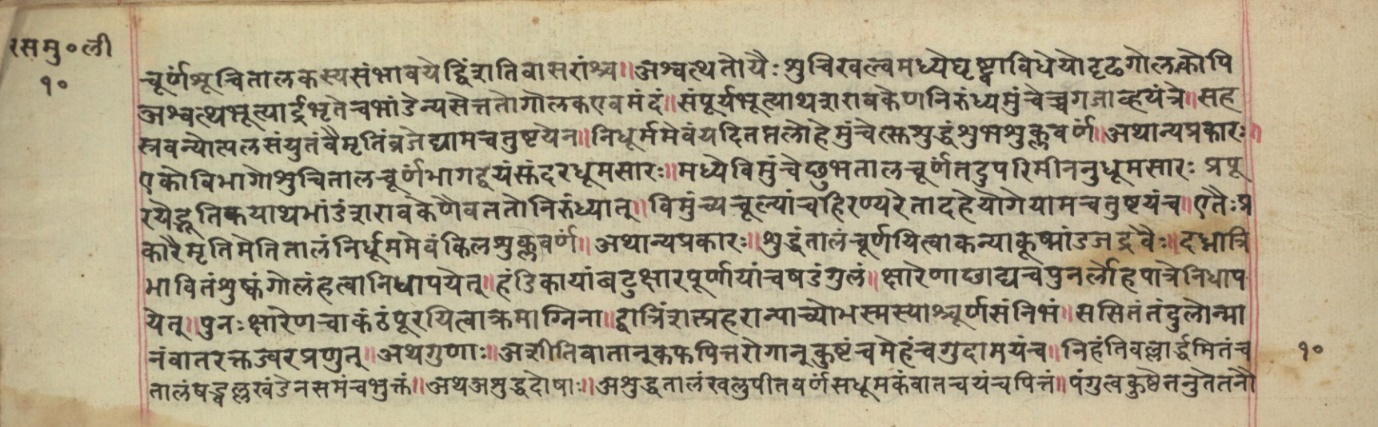 रसमु॰ली
१०
चूर्णशूचितालकस्यसंभावयेद्विंशतिवासरांश्च॥अश्वत्थतोयैःशुचिखल्वमध्येघृष्ट्वाविधेयोदृढगोलकोपि
अश्वत्थभूत्यार्द्रभृतेचभांडेन्यसेत्ततोगोलकएवमंदं॥संपूर्यभूत्याथशरावकेणनिरुंध्यमुंचेच्चगजाव्हयंत्रे॥सह
स्रवन्योत्पलसंयुतंवैमृतिंव्रजेद्यामचतुष्टयेन॥निधूर्ममेवंयदितप्तलोहेमुंचेत्सशुद्धंशुभशुक्लवर्णं॥अथान्यप्रकारः॥
एकोविभागोशुचितालचूर्णंभागद्वयंस्कंदरधूमसारः॥मध्येविमुंचेछुभतालचूर्णंतदुपरिमीननुधूमसारः प्रपू
रयेद्भूतिकयाथभांडंशरावकेणैवततोनिरुंध्यात्॥विमुंच्यचूल्यांचहिरण्यरेतादहेयोगेयामचतुष्टयंच॥एतैःप्र
कारैमृतिमेतितालंनिर्धूममेवंकिलशुक्लवर्णं॥अथान्यप्रकारः॥शुद्धंतालंचूर्णयित्वाकन्याकूष्मांडजद्रवैः॥दध्नात्रि
भावितंशुष्कंगोलंहत्वानिधापयेत्॥हंडिकायांबटुक्षारपूर्णायांचषडंगुलं॥क्षारेणाछाद्यचपुनर्लोहपात्रेनिधाप
येत्॥पुनःक्षारेणचाकंठंपूरयित्वाक्रमाग्निना॥द्वात्रिंशत्प्रहरान्पाच्योभस्मस्याश्चूर्णसंनिभं॥ससितंतंदुलोन्मा
नंवातरक्तज्वरप्रणुत्॥अथगुणाः॥अशीतिवातान्कफपित्तरोगान्कुष्टंचमेहंचगुदामयंच॥निहंतिवल्लार्द्धमितंच
१०
तालंषड्वल्लखंडेनसमंचभुक्तं॥अथअशुद्धदोषाः॥अशुद्धतालंखलुपीतवर्णंसधूमकंवातचयंचपित्तं॥पंगुत्वकुष्ठेतनुतेतनौ